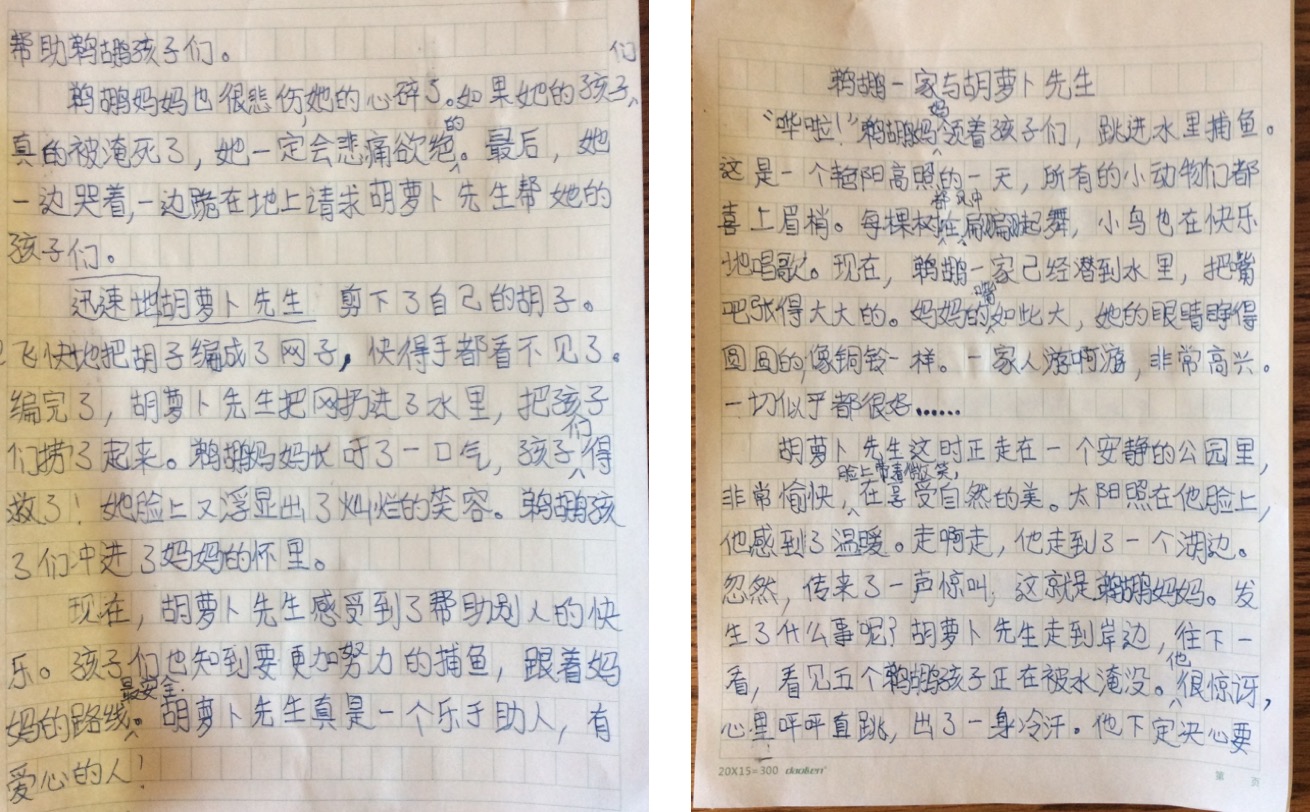 鹈鹕一家与胡萝卜先生
“哗啦！”鹈鹕妈妈领着孩子们，跳进水里捕鱼。
这是一个艳阳高照的一天，所有的小动物们都
喜上眉梢。每棵树都在风中扁蹁起舞，小鸟也在快乐
地唱歌。现在，鹈鹕一家已经潜到水里，把嘴
吧张得大大的。妈妈的嘴如此大，她的眼睛睁得
圆圆的，像铜铃一样。一家人游啊游，非常高兴。
一切似乎都很好……
胡萝卜先生这时正走在一个安静的公园里，
非常愉快，脸上带着微笑，在享受自然的美。太阳照在他脸上，
他感到了温暖。走啊走，他走到了一个湖边。
忽然，传来了一声惊叫，这就是鹈鹕妈妈。发
生了什么事呢？胡萝卜先生走到岸边，往下一
看，看见五个鹈鹕孩子正在被水淹没。他很惊讶，
心里呯呯直跳，出了一身冷汗。他下定决心要
20X15=300
第 页
帮助鹈鹕孩子们。
鹈鹕妈妈也很悲伤，她的心碎了。如果她的孩子们
真的被淹死了，她一定会悲痛欲绝的。最后，她
一边哭着，一边跪在地上请求胡萝卜先生帮她的
孩子们。
迅速地胡萝卜先生剪下了自己的胡子。
飞快地把胡子编成了网子，快得手都看不见了。
编完了，胡萝卜先生把网扔进了水里，把孩子
们捞了起来。鹈鹕妈妈长吁了一口气，孩子们得
救了！她脸上又浮显出了灿烂的笑容。鹈鹕孩
了们冲进了妈妈的怀里。
现在，胡萝卜先生感受到了帮助别人的快
乐。孩子们也知到要更加努力的捕鱼，跟着妈
妈的路线最安全。胡萝卜先生真是一个乐于助人，有
爱心的人！